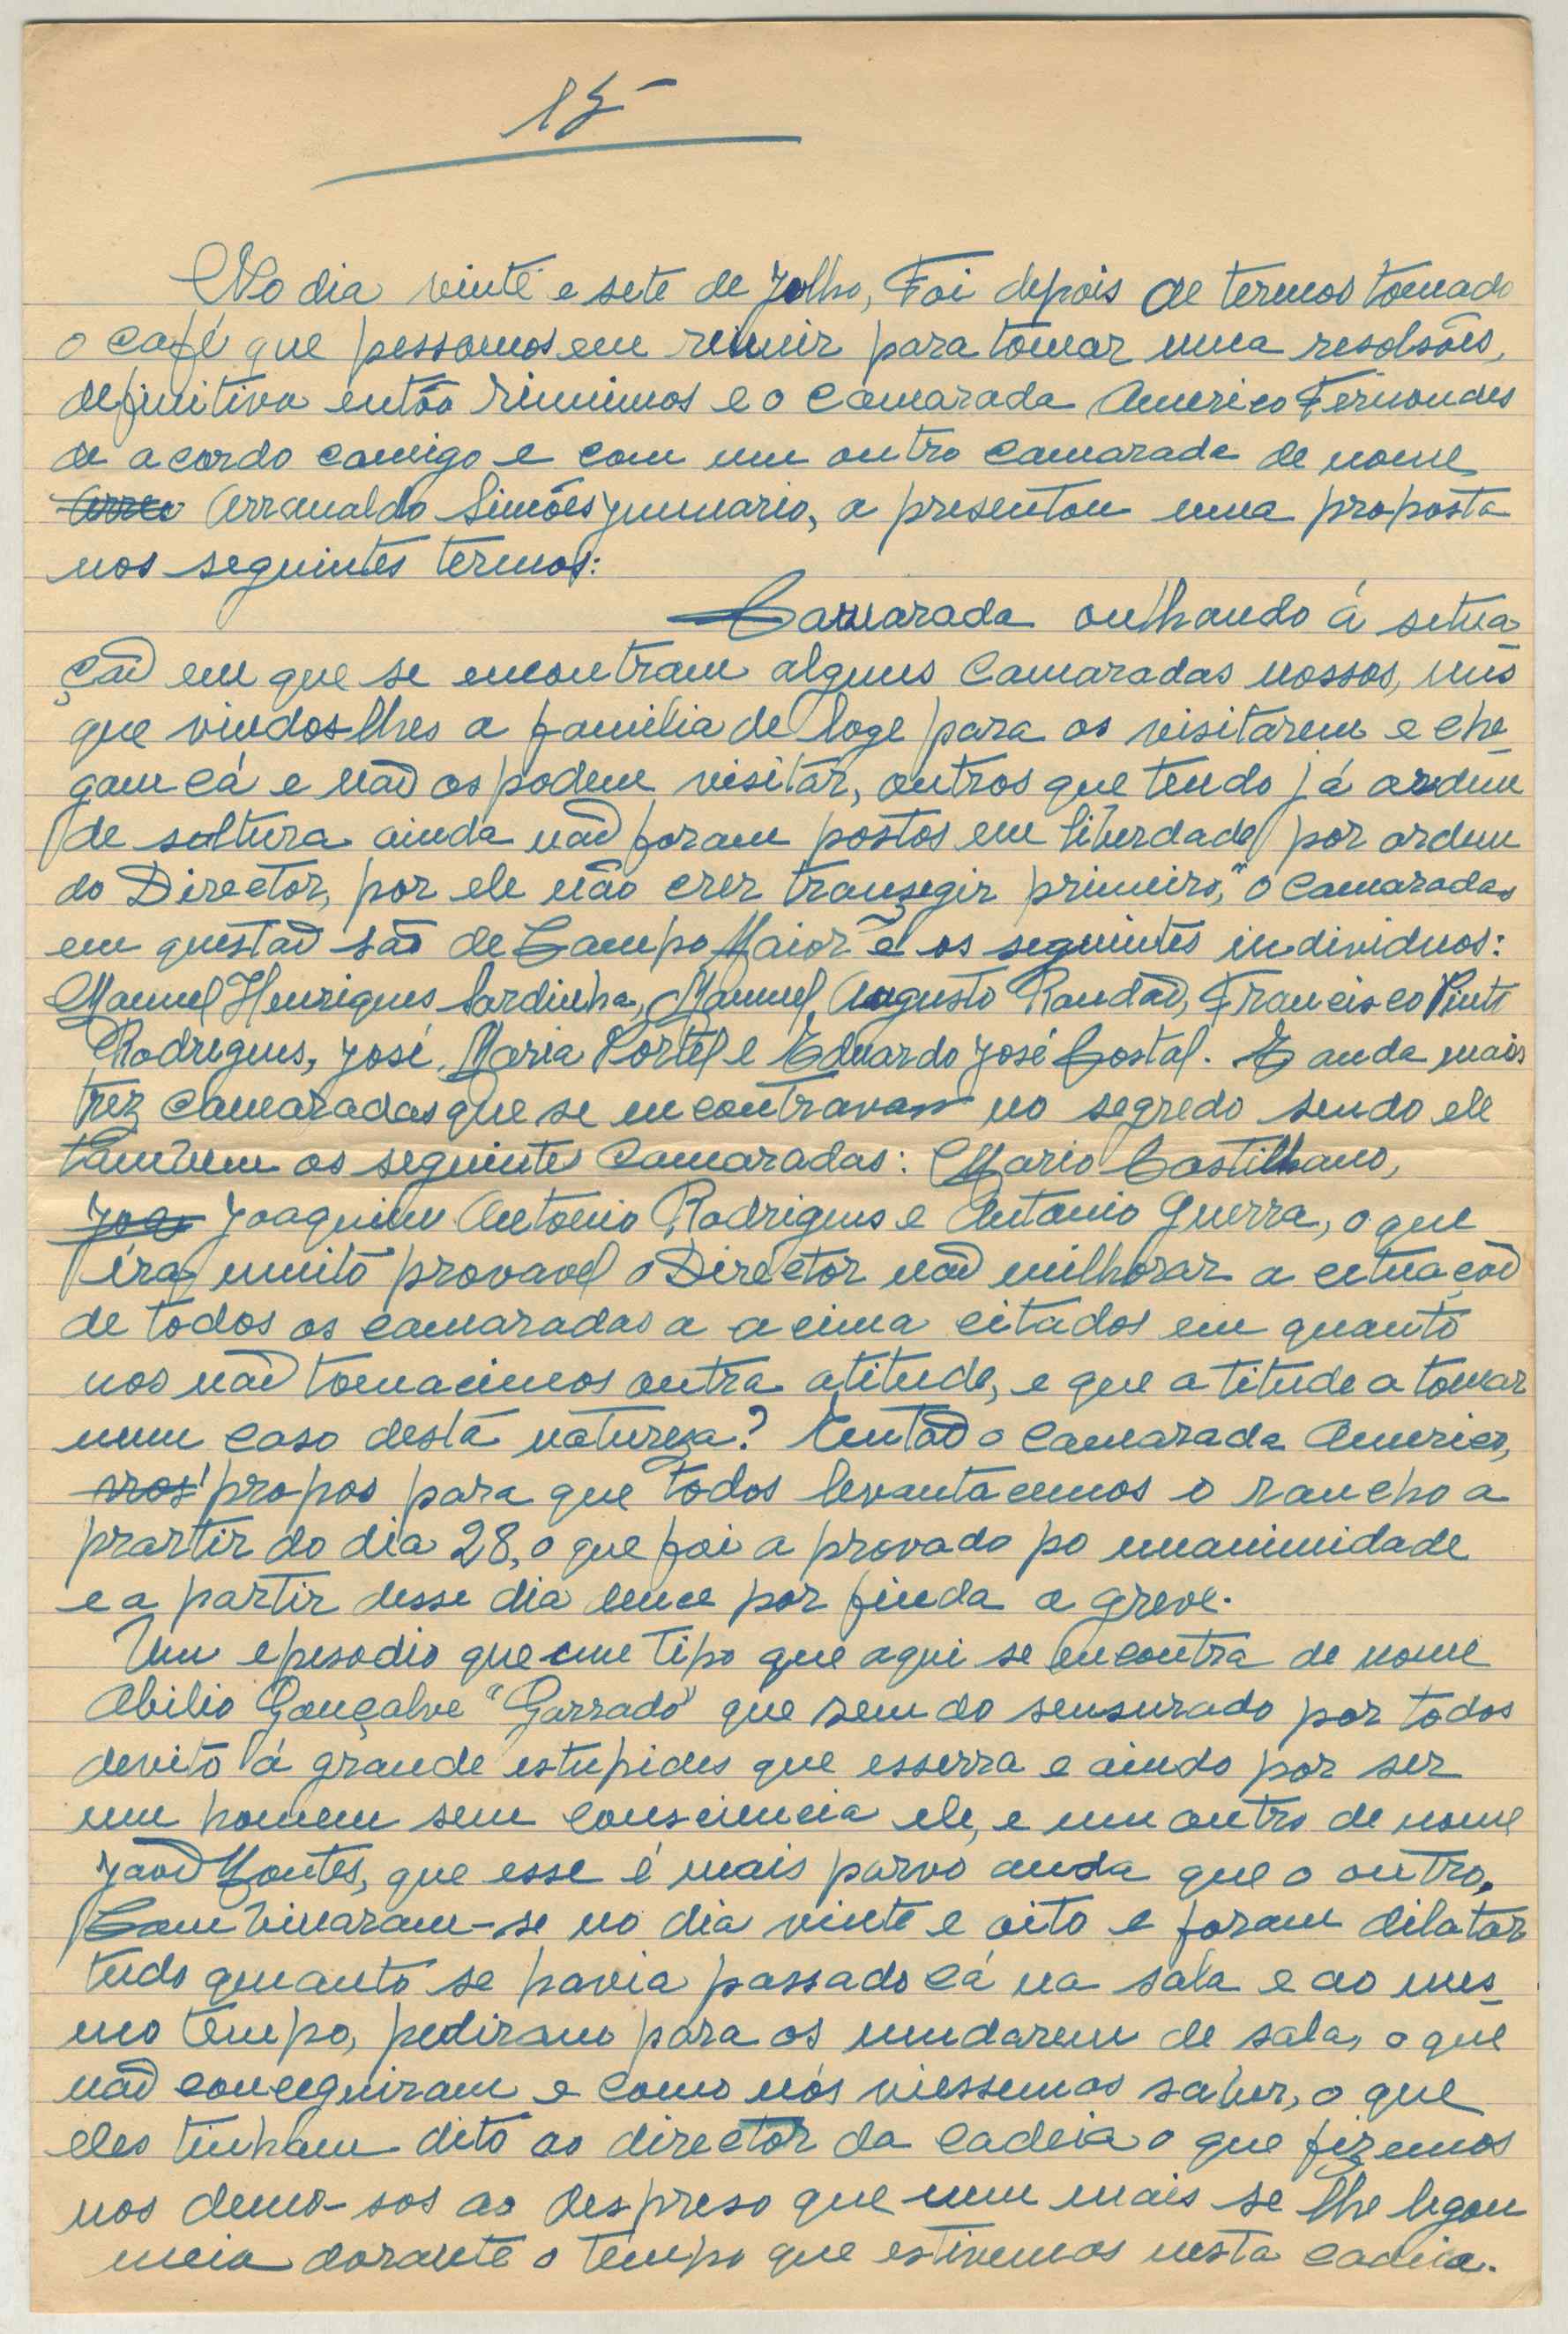 15
No dia vinte e sete de Jolho, Foi depois de termos tomado
o café que pessamos em reiunir para tomar uma resolsões,
definitiva então riunimos e o camarada Americo Fernandes
de acordo comigo e com um outro camarada de nome
Arranaldo Simões Junuario, a presentou uma proposta
nos seguintes termos:
Camarada oulhando á setua
ção em que se encontram alguns camaradas nossos, uns
que vindos-lhes a familia de loge para os visitarem e che-
gam cá e não os podem visitar, outros que tendo já ordem
de soltura ainda não foram postos em liberdade por ordem
do Director, por ele não crer transegir primeiro," o camaradas
em questão são de Campo Maior" e os seguintes individuos:
Manuel Henriques Sardinha, Manuel Augusto Roudão, Francisco Pinto
Rodrigues, José Maria Portel e Eduardo José Costal. E anda mais
trez camaradas que se encontravam no segredo sendo ele
tambem os seguintes camaradas: Mario Castilhano,
Joaquim Antonio Rodrigues e Antonio Guerra, o que
éra muito provavel o Director não milhorar a cituação
de todos os camaradas a acima citados em quanto
nos não tomacimos outra atitude, e que atitude a tomar
num caso desta natureza? Então o camarada Americo,
nos propos para que todos levantacemos o rancho a
prartir do dia 28, o que foi a provado po unanimidade
e a partir desse dia por finda a greve.
Um epesodio que um tipo que aqui se encontra de nome
Abilio Gonçalve "Garrado" que sendo sensurado por todos
devito á grande estupides que esserra e aindo por ser
um homem sem consciencia ele, e um outro de nome
João Montes, que esse é mais parvo anda que o outro,
Combinaram-se no dia vinte e oito e foram dilatar
tudo quanto se havia passado cá na sala e ao mes-
mo tempo, pediram para os mudarem de sala, o que
não conceguiram e como nós viessemos saber, o que
eles tinham dito ao director da cadeia o que fizemos
nos demo-sos ao despreso que num mais se lhe legou
meia dorante o tempo que estivemos nesta cadeia.